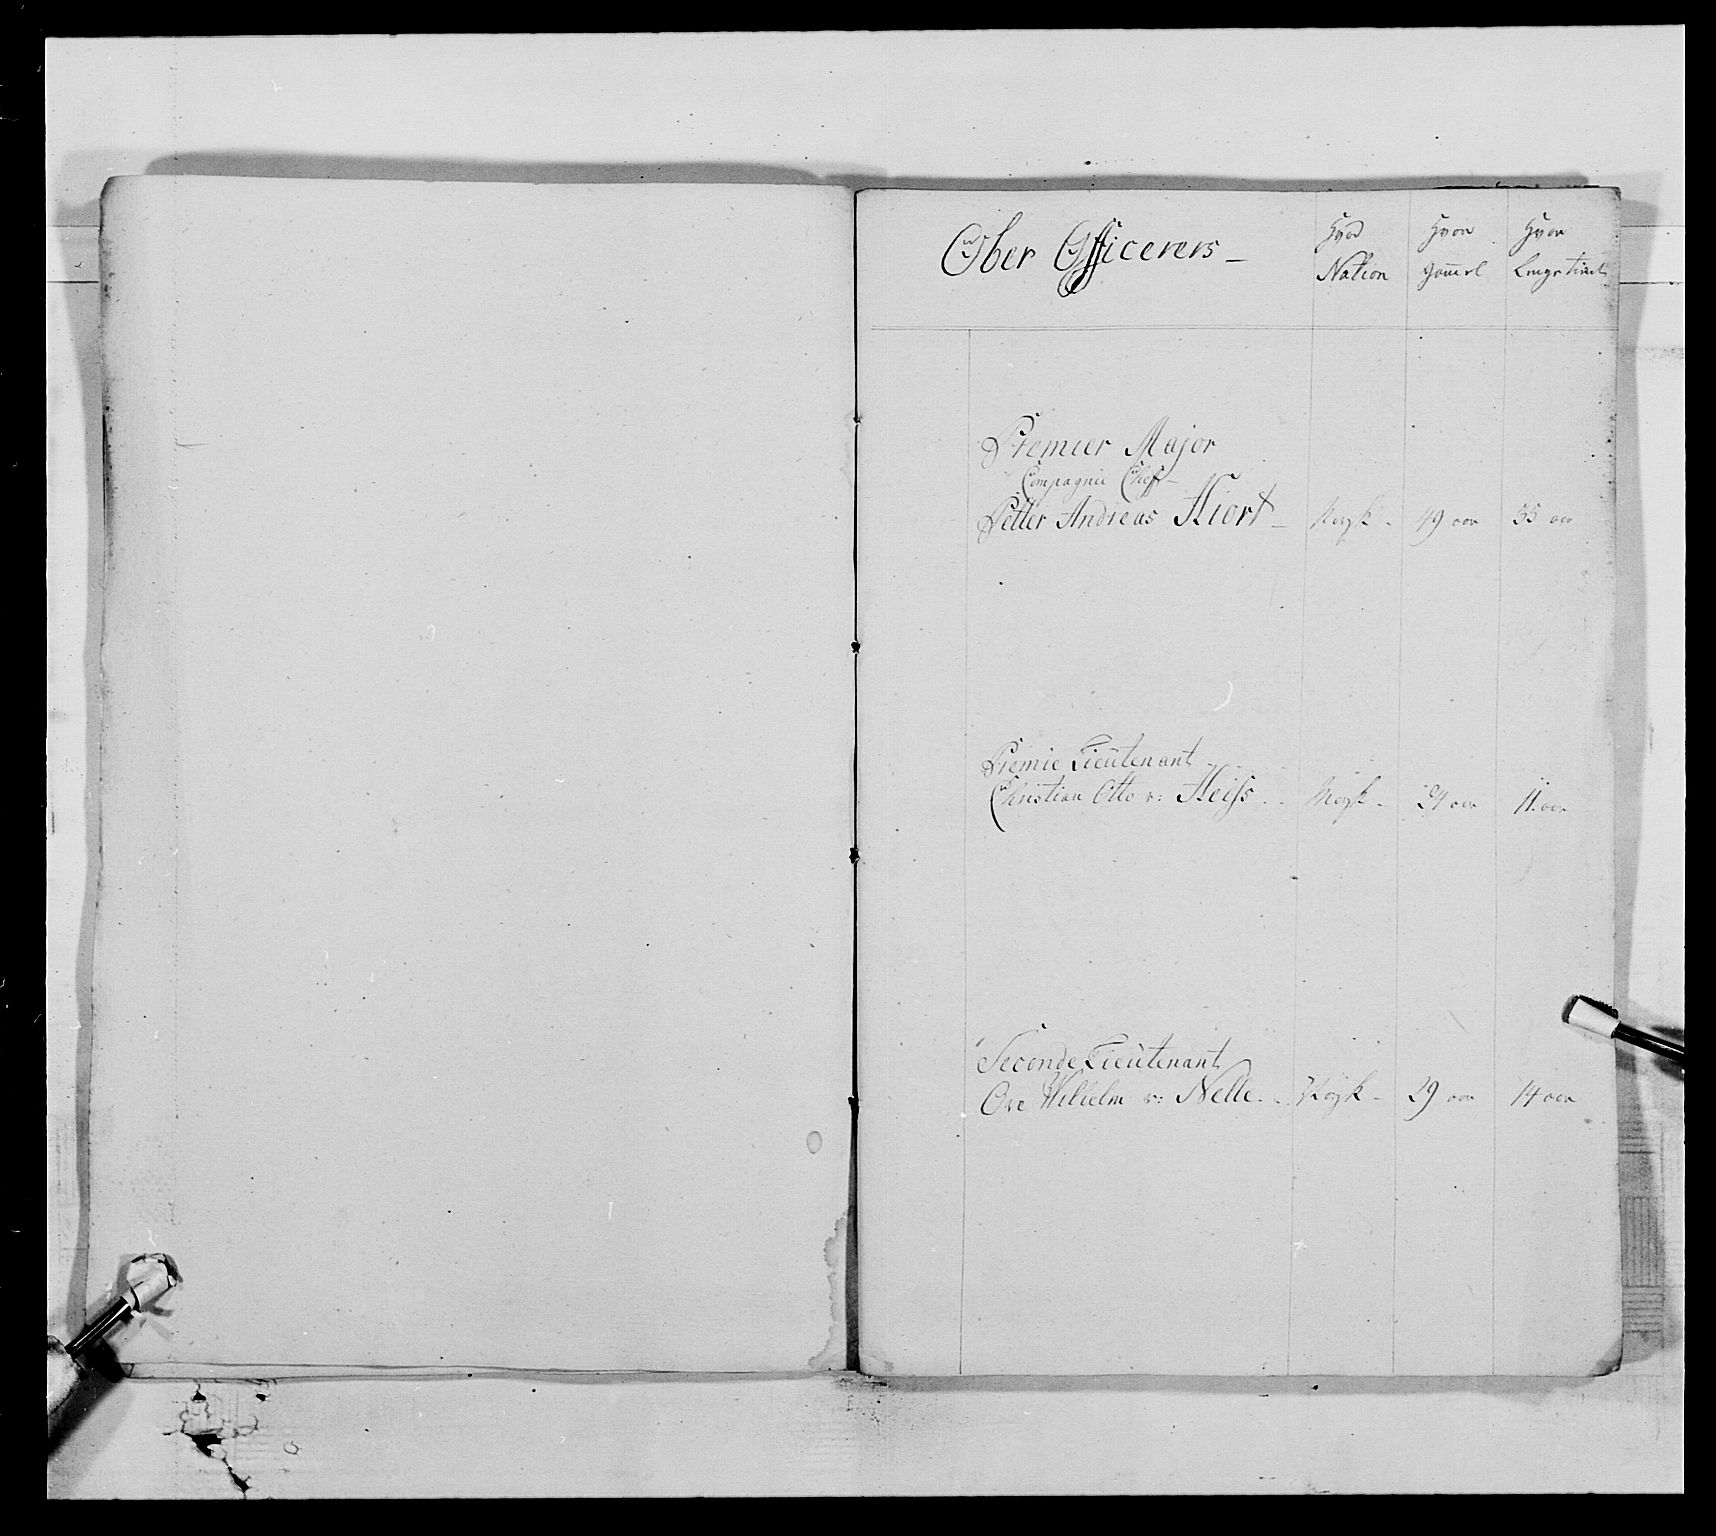 Ober Officerers –
Hvad
Nation
Hvor
Gam̄el
Hvor
Lenge tient
Premier Major
Compagnie Chef –
Petter Andreas Hiort – Norsk – 49 aar 35 aar
Premie Lieutenant
Christian Otto v: Heiss – Norsk – 24 aar 11 aar
Seconde Lieutenant
Ove Wilhelm v: Nelle – Norsk – 29 aar 14 aar